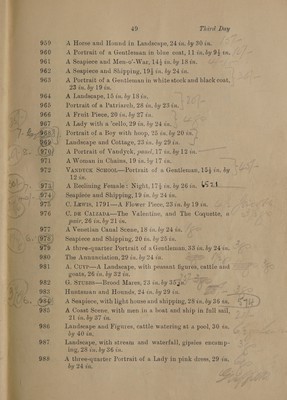 49 Third Day
959 A Horse and Hound in Landscape, 24 in. by 20 in.
960 A Portrait of a Gentleman in blue coat, 11 in. by 9½ in.
961 A Seapiece and Men-o'-War, 14½ in. by 18 in.
962 A Seapiece and Shipping, 19½ in. by 24 in.
963 A Portrait of a Gentleman in white stock and black coat,
23 in. by 19 in.
964 A Landscape, 15 in. by 18 in.
965 Portrait of a Patriarch, 26 in. by 23 in.
966 A Fruit Piece, 20 in. by 27 in.
967 A Lady with a 'cello, 29 in. by 24 in.
968 Portrait of a Boy with hoop, 25 in. by 20 in.
969 Landscape and Cottage, 23 in. by 29 in.
970 A Portrait of Vandyck, panel, 17 in. by 12 in.
971 A Woman in Chains, 19 in. by 17 in.
972 VANDYCK SCHOOL—Portrait of a Gentleman, 15½ in. by
12 in.
973 A Reclining Female: Night, 17½ in. by 26 in.
974 Seapiece and Shipping, 19 in. by 24 in.
975 C. LEWIS, 1791—A Flower Piece, 23 in. by 19 in.
976 U. DE CALZADA—The Valentine, and The Coquette, a
pair, 26 in. by 21 in.
977 A Venetian Canal Scene, 18 in. by 24 in.
978 Seapiece and Shipping, 20 in. by 25 in.
979 A three-quarter Portrait of a Gentleman, 53 in. by 24 in.
980 The Annunciation, 29 in. by 24 in.
981 A. CUYP—A Landscape, with peasant figures, cattle and
goats, 26 in. by 32 in.
982 G. STUBBS—Brood Mares, 23 in. by 35 in.
983 Huntsman and Hounds, 24 in. by 29 in.
984 A Seapiece, with light house and shipping, 28 in. by 36 in.
985 A Coast Scene, with men in a boat and ship in full sail,
21 in. by 37 in.
986 Landscape and Figures, cattle watering at a pool, 30 in.
by 40 in.
987 Landscape, with stream and waterfall, gipsies encamp-
ing, 28 in. by 36 in.
988 A three-quarter Portrait of a Lady in pink dress, 29 in.
by 24 in.